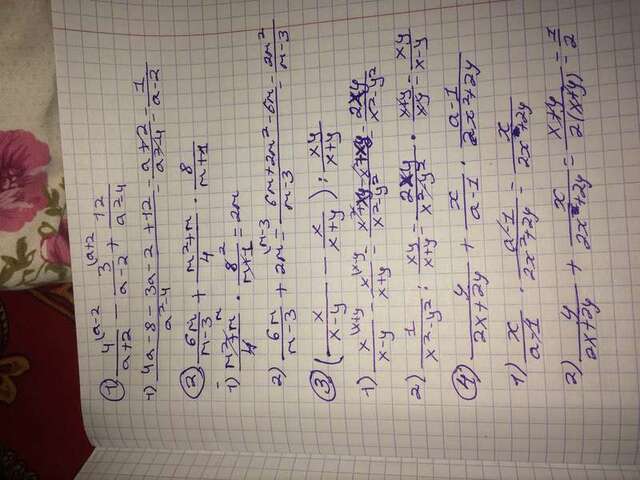 ① 4^(a-2)/(a+2) - 3^(a+2)/(a-2) + 12/(a²-4)
1) (4a-8-3a-2+12)/(a²-4) = (a+2)/(a²-4) = 1/(a-2)
② 6m/(m-3) + (m²+m)/4 · 8/(m+1)
1) (m²+m)^m/4 · 8^2/(m+1) = 2m
2) 6m/(m-3) + 2m^(m-3) = (6m+2m²-6m)/(m-3) = 2m²/(m-3)
③ (x/(x-y) - x/(x+y)) : xy/(x+y)
1) x^(x+y)/(x-y) - x^(x-y)/(x+y) = (x²+xy-x²+xy)/(x²-y²) = 2xy/(x²-y²)
2) 1/(x²-y²) : xy/(x+y) = 2xy/(x²-y²) · (x+y)/xy = xy/(x-y)
④ y/(2x+2y) + x/(a-1) · (a-1)/(2x²+2y)
1) x/(a-1) · (a-1)/(2x²+2y) = x/(2x+2y)
2) y/(2x+2y) + x/(2x+2y) = (x+y)/(2(x+y)) = 1/2